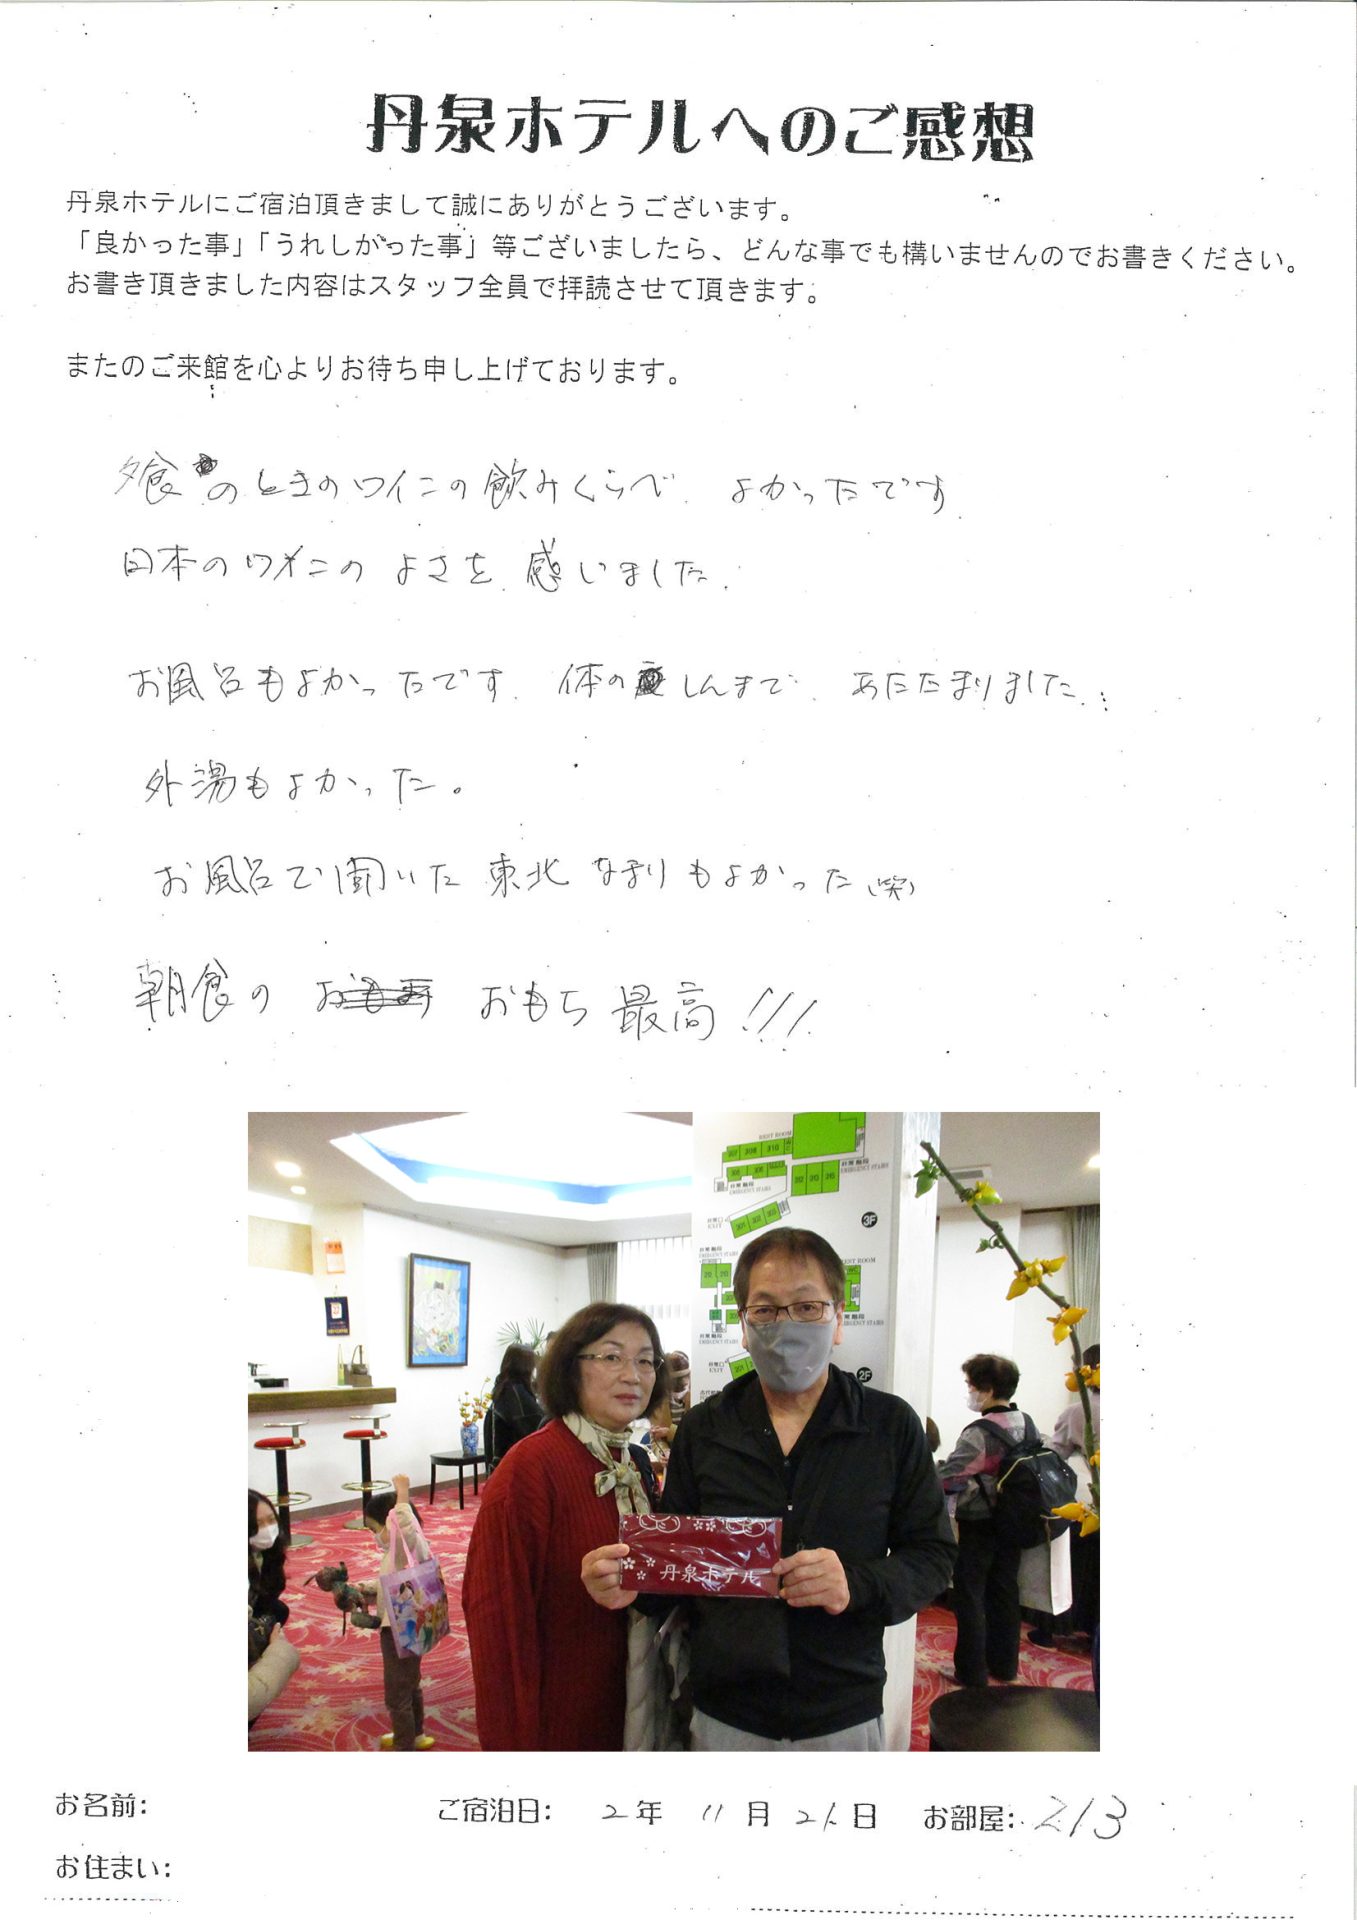 丹泉ホテルへのご感想
丹泉ホテルにご宿泊頂きまして誠にありがとうございます。
「良かった事」「うれしかった事」等ございましたら、どんな事でも構いませんのでお書きください。
お書き頂きました内容はスタッフ全員で拝読させて頂きます。
またのご来館を心よりお待ち申し上げております。
夕食のときのワインの飲みくらべ、よかったです
日本のワインのよさを、感じました、
お風呂もよかったです、体のしんまで、あたたまりました、
外湯もよかった。
お風呂で聞いた東北なまりもよかった(笑)
朝食の おもち最高!!!
REST ROOM
307 308 310
305 306
非常階段
EMERGENCY STAIRS
非常階段
EMERGENCY STAIRS
非常口
EXIT
301 302 303
3F
非常階段
EMERGENCY STAIRS
REST ROOM
非常階段
EMERGENCY STAIRS
非常口
EXIT
201
2F
丹泉ホテル
お名前:
ご宿泊日: 2年 11月 21日
お部屋: 213
お住まい: